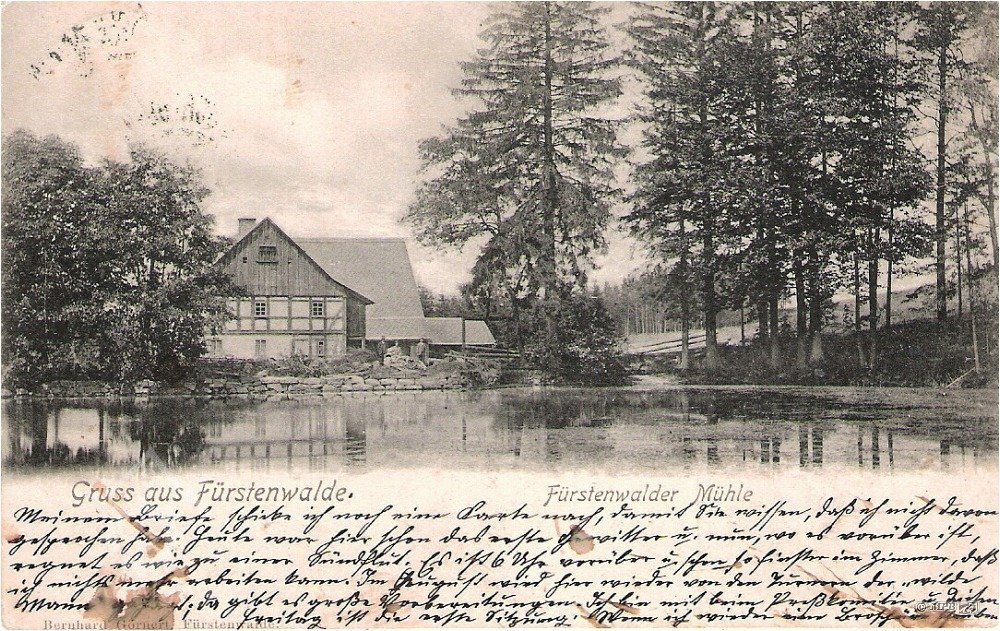 Gruss aus Fürstenwalde.
Fürstenwalder Mühle
Meinem Briefe schicke ich noch eine Karte nach, damit Sie wissen, daß ich nicht davon
gesprochen habe. Heute war hier schon das erste Gewitter u. nun, wo es vorüber ist,
regnet es wie zu einer Sündflut. Es ist 6 Uhr vorüber u. schon so finster im Zimmer, daß
ich nichts mehr arbeiten kann. Im August wird hier wieder von den Turnern der „wilde
Mann", da gibt es große Vorbereitungen. Ich bin mit beim Preßkomitee u. diesen
Freitag ist die erste Sitzung. Muß ich wieder eine
Bernhard Görnert, Fürstenwalde.